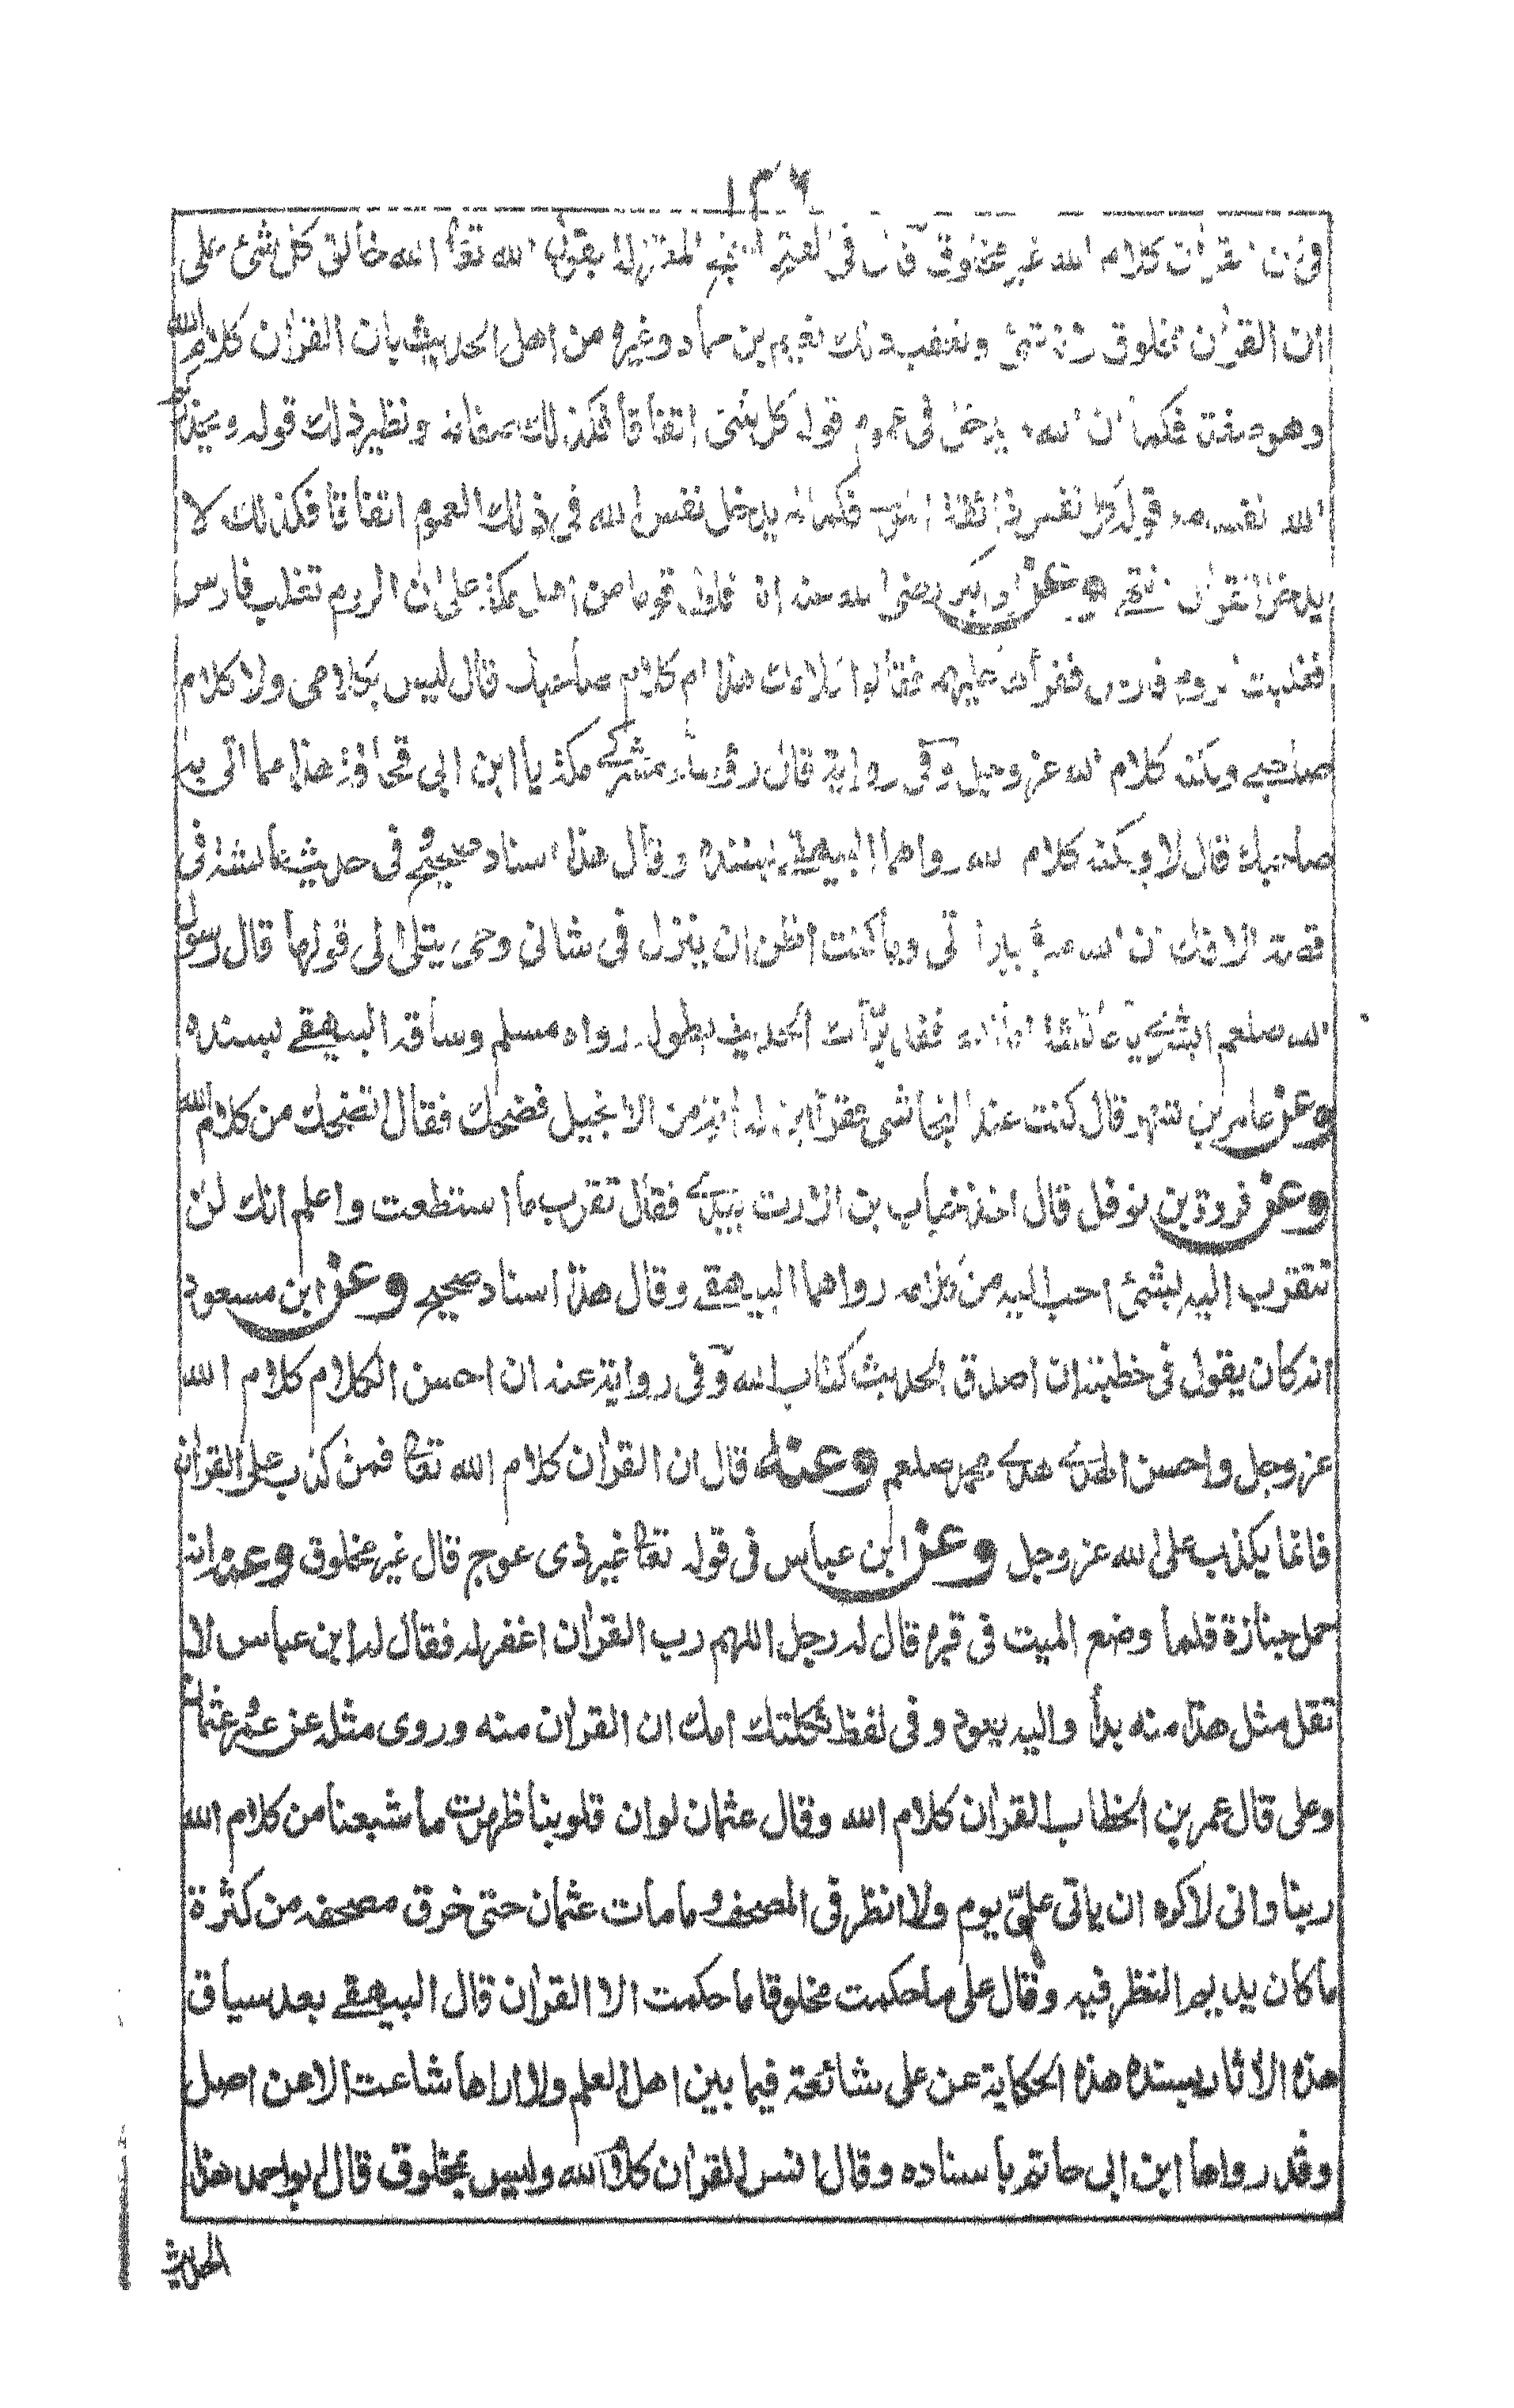 ١٣٦
القرآن كلام الله غير مخلوق قال فى الفتح احتج المعتزلة بقوله الله تعا الله خالق كل شئ على
ان القرآن مخلوق لانه شئ وتعقب ذلك نعيم بن حماد وغيره من اهل الحديث بان القرآن كلام الله
وهو صفته فكما ان الله لم يدخل فى عموم قوله كل شئ اتفاقا فكذلك صفاته ونظير ذلك قوله ويحذركم
الله نفسه مع قوله كل نفس ذائقة الموت فكما لم يدخل نفس الله فى ذلك العموم اتفاقا فكذلك لا
يدخل القرآن انتهى وعن ابى بكر رضى الله عنه انه قاول قوما من اهل مكة على ان الروم تغلب فارس
فغلبت الروم فارس فقرأها عليهم فقالوا كلامك هذا ام كلام صاحبك قال ليس بكلامى ولا كلام
صاحبى ولكنه كلام الله عز وجل وفى رواية قال رؤساء مشركى مكة يا ابن ابى قحافة هذا مما اتى به
صاحبك قال لا ولكنه كلام الله رواهما البيهقى بسنده وقال هذا اسناد صحيح فى حديث عائشة فى
قصة الافك ان الله مبرئى ببراءتى وما كنت اظن ان ينزل فى شانى وحى يتلى الى قولها قال رسول
الله صلعم ابشرى يا عائشة اما الله فقد برأك الحديث بطوله رواه مسلم وساقه البيهقى بسنده
وعن عامر بن شهر قال كنت عند النجاشى فقرأ ابن له اية من الانجيل فضحكت فقال اتضحك من كلام الله
وعن فروة بن نوفل قال اخذ خباب بن الارت بيدى فقال تقرب ما استطعت واعلم انك لن
تتقرب اليه بشئ احب اليه من كلامه رواهما البيهقى وقال هذا اسناد صحيح وعن ابن مسعود
انه كان يقول فى خطبته ان اصدق الحديث كتاب الله وفى رواية عنه ان احسن الكلام كلام الله
عز وجل واحسن الهدى هدى محمد صلعم وعنه قال ان القرآن كلام الله تعا فمن كذب على القرآن
فانما يكذب على الله عز وجل وعن ابن عباس فى قوله تعا غير ذى عوج قال غير مخلوق وعنه انه
حمل جنازة فلما وضع الميت فى قبره قال له رجل اللهم رب القرآن اغفر له فقال له ابن عباس لا
تقل مثل هذا منه بدأ واليه يعود وفى لفظ ثكلتك امك ان القرآن منه وروى مثله عن عمر وعثمان
وعلى قال عمر بن الخطاب القرآن كلام الله وقال عثمان لو ان قلوبنا ظهرت ما شبعنا من كلام الله
ربنا وانى لاكره ان ياتى علىّ يوم ولا انظر فى المصحف وما مات عثمان حتى خرق مصحفه من كثرة
ما كان يديم النظر فيه وقال على ما حكمت مخلوقا ما حكمت الا القرآن قال البيهقى بعد سياق
هذه الآثار بسنده هذه الحكاية عن على شائعة فيما بين اهل العلم ولا اراها شاعت الا عن اصل
وقد رواها ابن ابى حاتم باسناده وقال انس القرآن كلام الله وليس بمخلوق قال ابو احمد هذا
الحديث